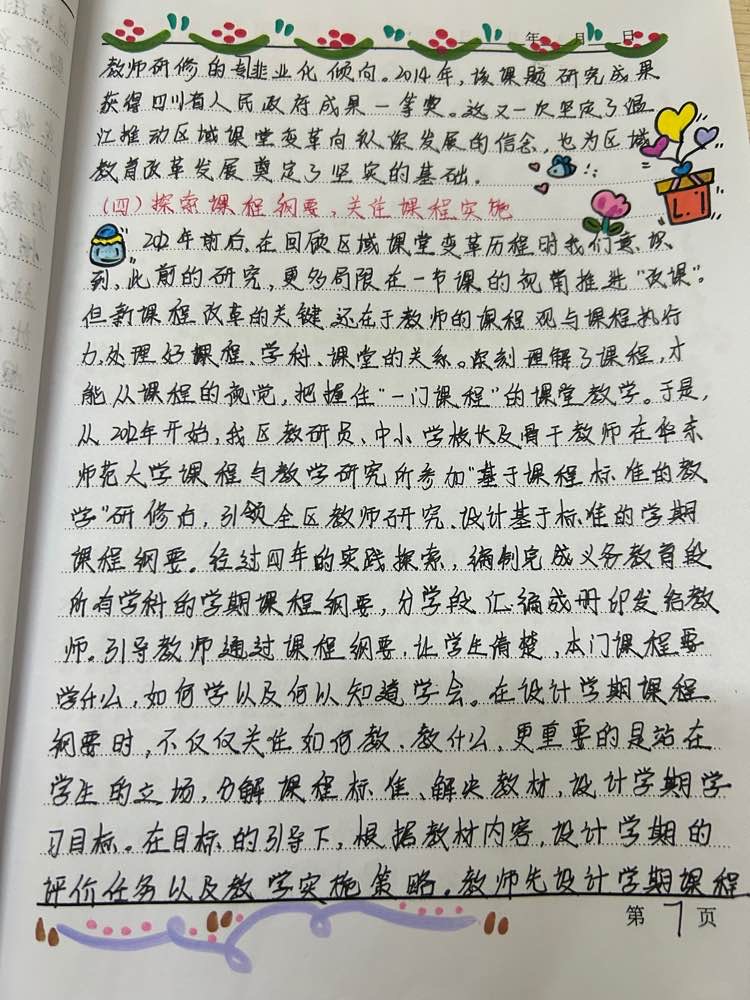 年 月 日
教师研修的专业化倾向。2014年，该课题研究成果
获得四川省人民政府成果一等奖。这又一次坚定了温
江推动区域课堂变革向纵深发展的信念，也为区域
教育改革发展奠定了坚实的基础。
(四) 探索课程纲要，关注课程实施
2012年前后，在回顾区域课堂变革历程时我们意识
到，此前的研究，更多局限在一节课的视角推进“改课”。
但新课程改革的关键还在于教师的课程观与课程执行
力，处理好课程、学科、课堂的关系。深刻理解了课程，才
能从课程的视觉，把握住“一门课程”的课堂教学。于是，
从2012年开始，我区教研员、中小学校长及骨干教师在华东
师范大学课程与教学研究所参加“基于课程标准的教
学”研修后，引领全区教师研究、设计基于标准的学期
课程纲要。经过四年的实践探索，编制完成义务教育段
所有学科的学期课程纲要，分学段汇编成册印发给教
师。引导教师通过课程纲要，让学生清楚，本门课程要
学什么，如何学以及何以知道学会。在设计学期课程
纲要时，不仅仅关注如何教、教什么，更重要的是站在
学生的立场，分解课程标准、解决教材，设计学期学
习目标。在目标的引导下，根据教材内容，设计学期的
评价任务以及教学实施策略。教师先设计学期课程
第 7 页
L.I